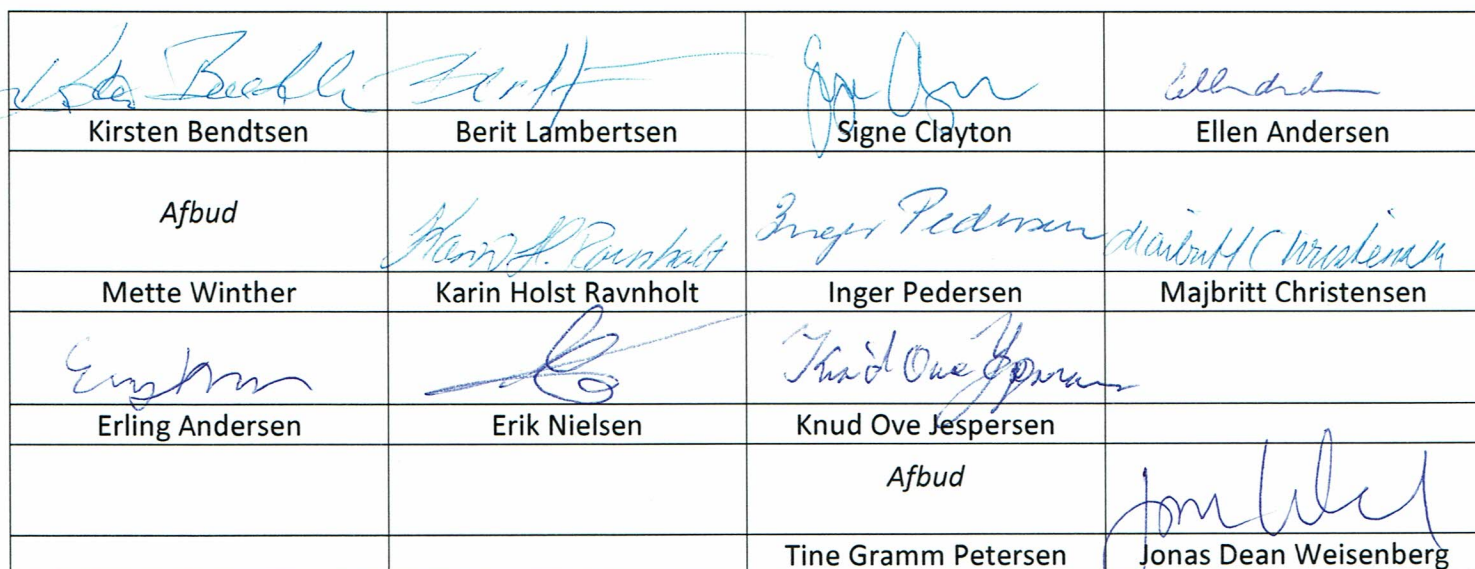 Kirsten Bendtsen Berit Lambertsen Signe Clayton Ellen Andersen
Afbud Karin H. Ravnholt Inger Pedersen Majbritt Christensen
Mette Winther Karin Holst Ravnholt Inger Pedersen Majbritt Christensen
Knud Ove Jespersen
Erling Andersen Erik Nielsen Knud Ove Jespersen
Afbud
Tine Gramm Petersen Jonas Dean Weisenberg